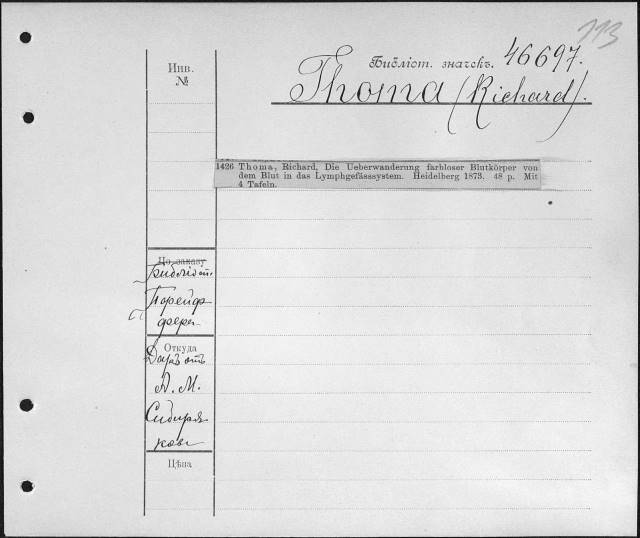 113
Библіот. значекъ. 46697.
Thoma (Richard).
Инв.
№
1426 Thoma, Richard, Die Ueberwanderung farbloser Blutkörper von
dem Blut in das Lymphgefässsystem. Heidelberg 1873. 48 p. Mit
4 Tafeln.
По заказу
Библіот.
Порейф
фера
Откуда
Даръ отъ
А. М.
Сибиря
кова
Цѣна